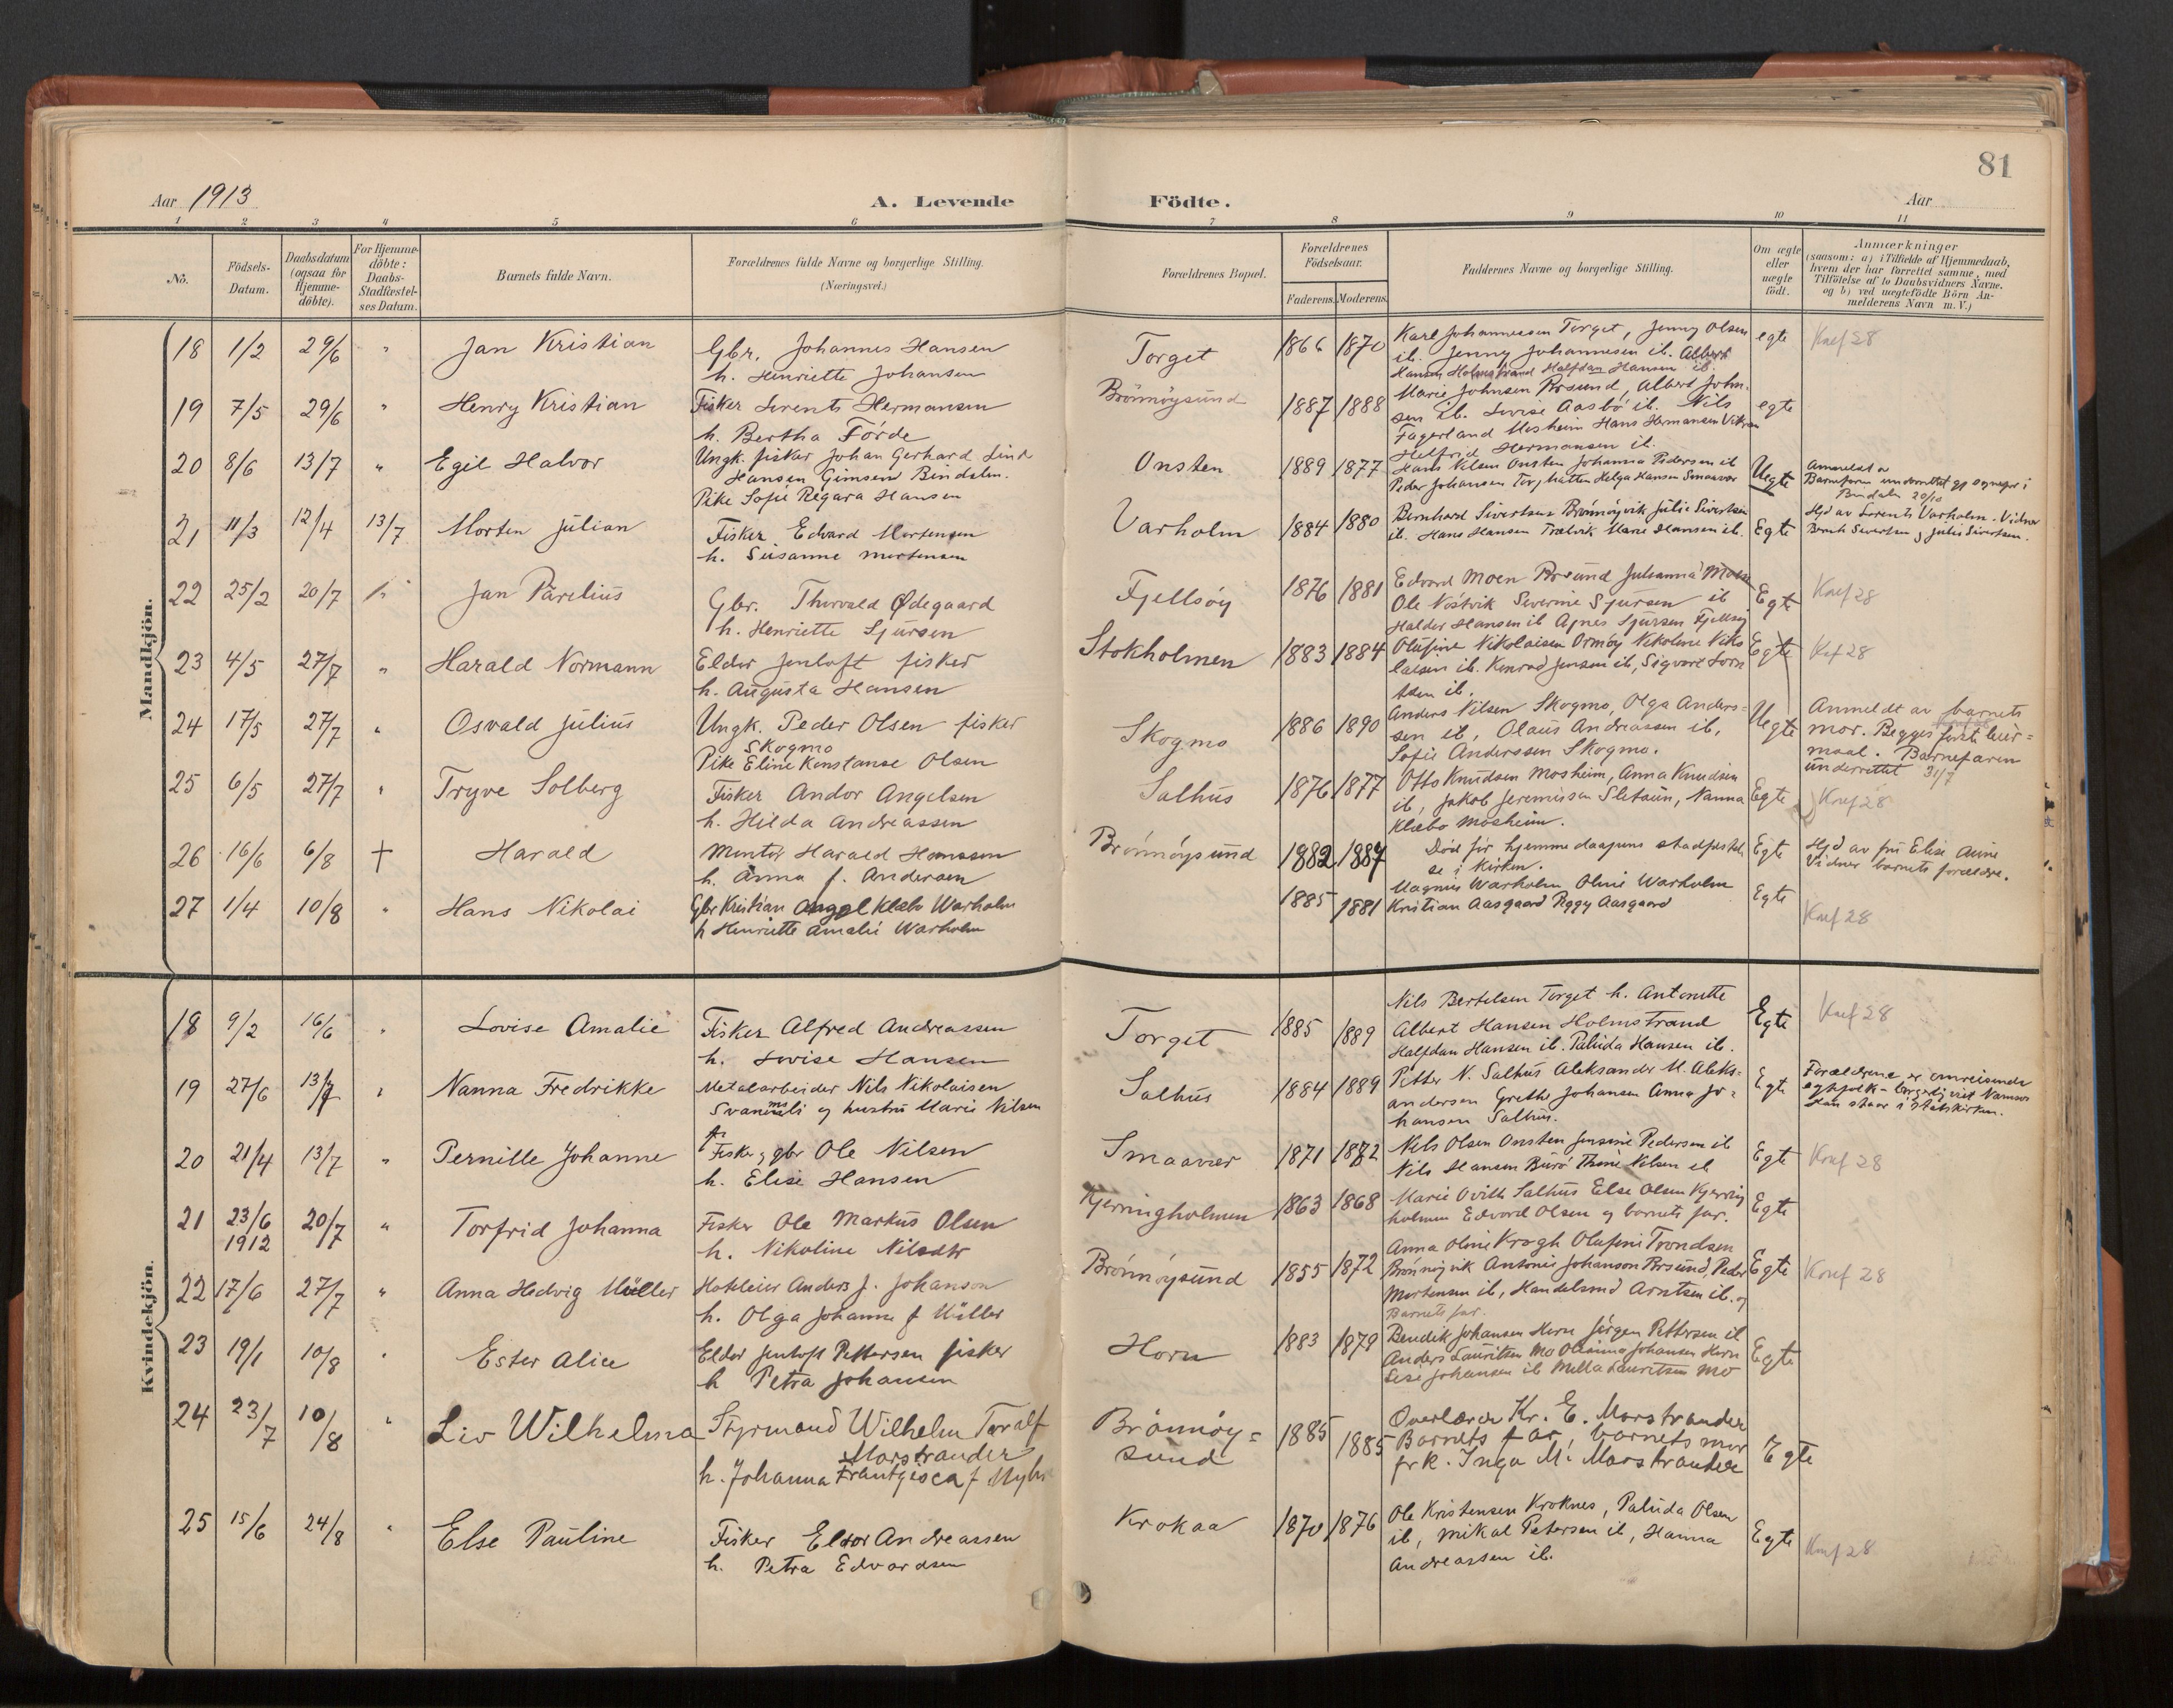 81
Aar 1913
A. Levende
Födte.
Aar
1 2 3 4 5 6 7 8 9 10 11
No.
Födsels-
Datum.
Daabsdatum
(ogsaa for
Hjemme-
döbte).
For Hjemme-
döbte:
Daabs-
Stadfæstel-
ses Datum.
Barnets fulde Navn.
Forældrenes fulde Navne og borgerlige Stilling.
(Næringsvei.)
Forældrenes Bopæl.
Forældrenes
Födselsaar.
Faderens. Moderens.
Faddernes Navne og borgerlige Stilling.
Om ægte
eller
uægte
födt.
Anmærkninger
(saasom: a) i Tilfælde af Hjemmedaab,
hvem der har forrettet samme, med
Tilföielse af to Daabsvidners Navne,
og b) ved uægtefödte Börn An-
melderens Navn m. V.)
Mandkjön.
18 1/2 29/6 " Jan Kristian
Gbr. Johannes Hansen
h. Henriette Johansen
Torget 1866 1870
Karl Johannessen Torget, Jenny Olsen
ib. Jenny Johannesen ib. Albert
Hansen Holmstrand Halfdan Hansen ib.
egte
Knef 28
19 7/5 29/6 " Henry Kristian
Fisker Lorents Hermansen
h. Bertha Förde
Brönnöysund 1887 1888
Marie Johnsen Brsund, Albert John-
sen ib. Lovise Aasbö ib. Nils
Fagerland Mosheim Hans Hermansen
Helfrid Hermansen ib.
egte
20 8/6 13/7 " Egil Halvor
Ungk. fisker Johan Gerhard Lind
Hansen Gimsen Bindalen.
Pike Sofie Regara Hansen
Onsten 1889 1877
Hans Nilsen Onsten Johanna Pedersen ib
Peder Johansen Torghatten Helga Hansen Smaavær
Uegte
Anmeldt av
Barnefaren underrettet gj sogнepr i
Bindalen 20/10
21 11/3 12/4 13/7 Morten Julian
Fisker Edvard Mortensen
h. Susanne Mortensen
Varholm 1884 1880
Bernhard Sivertsen Brönnöyvik Julie Sivertsen
ib. Hans Hansen Trælvik Marie Hansen ib.
Egte
Hjd av Lorents Varholm. Vidner
Bernh Sivertsen, Julie Sivertsen.
22 25/2 20/7 Jan Parelius
Gbr. Thorvald Ødegaard
h. Henriette Sjursen
Fjellsöy 1876 1881
Edvard Moen Brsund Johanna Moen
Ole Nöstvik Severine Sjursen ib
Haldor Hansen ib Agnes Sjursen Fjellsöy
Egte
Knef 28
23 4/5 27/7 " Harald Normann
Eldor Jentoft fisker
h. Augusta Hansen
Stokholmen 1883 1884
Olufine Nikolaisen Ormöy Nikoline Niko
laisen ib. Konrad Jensen ib, Sigvart Sorn
tsen ib.
Egte
Kef 28
24 17/5 27/7 " Osvald Julius
Ungk. Peder Olsen fisker
Skogmo
Pike Eline Konstanse Olsen
Skogmo 1886 1890
Anders Nilsen Skogmo, Olga Anders=
sen ib, Olaus Andreassen ib,
Sofie Anderssen Skogmo.
Uegte
Anmeldt av barnets
mor. Begges förste leier=
maal. Barnefaren
underrettet 31/7
25 6/5 27/7 " Tryve Solberg
Fisker Andor Angelsen
h. Hilda Andreassen
Salhus 1876 1877
Otto Knudsen Mosheim, Anna Knudsen
ib, Jakob Jeremissen Sletaun, Nanna
Klæbo Mosheim.
Egte
Knef 28
26 16/6 6/8 † Harald
Montör Harald Hanssen
h. Anna f. Andersen
Brönnöysund 1882 1887
Död för hjemmedaapens stadfestel
se i kirken.
Egte
Hjd av fru Elise Aune
Vidner barnets forældre.
27 1/4 10/8 " Hans Nikolai
Gbr Kristian Angel Klæbo Warholm
h Henriette Amalie Warholm
1885 1881
Magnus Warholm Oline Warholm
Kristian Aasgaard Peggy Aasgaard
Egte
Knef 28
Kvindekjön.
18 9/2 16/6 " Lovise Amalie
Fisker Alfred Andreassen
h. Lovise Hansen
Torget 1885 1889
Nils Bertelsen Torget h. Antonette
Albert Hansen Holmstrand
Halfdan Hansen ib. Palida Hansen ib.
Egte
Knef 28
19 27/6 13/7 " Nanna Fredrikke
Metalarbeider Nils Nikolaisen
Svanemsli og hustru Marie Nilsen
Salhus 1884 1889
Petter N. Salhus Aleksander M. Aleks=
andersen Grethe Johansen Anna Jo=
hansen Salhus.
Egte
Forældrene er omreisende
egtefolk - Namsos
Han staar i statskirken.
20 21/4 13/7 " Pernille Johanne
Fisker, gbr Ole Nilsen
h. Elise Hansen
Smaavær 1871 1872
Nils Olsen Onsten Jensine Pedersen ib
Nils Hansen Burö Thine Nilsen ib
Egte
Knef 28
21 23/6 1912 20/7 " Torfrid Johanna
Fisker Ole Markus Olsen
h. Nikoline Nilsdtr
Kjerringholmen 1863 1868
Marie Salhus Else Olsen Kjerring
holmen Edvard Olsen og barnets far.
Egte
22 17/6 27/7 " Anna Hedvig Müller
Hoteleier Anders J. Johanson
h. Olga Johanne f Müller
Brönnöysund 1855 1872
Anna Oline Krogh Olufine Trondsen
Brönnöyvik Antonie Johanson Brsund, Peder
Mortensen ib, Handelsmd Arntsen ib. og
Barnets far.
Egte
Knef 28
23 19/1 10/8 " Ester Alice
Eldor Jentoft Pettersen fisker
h Petra Johansen
Horn 1883 1879
Bendik Johansen Horn Jörgen Pettersen ib
Anders Lauritsen Mo Olianna Johansen Horn
Lise Johansen ib Milla Lauritsen Mo
Egte
24 23/7 10/8 " Liv Wilhelma
Styrmand Wilhelm Toralf
Marstrander
h. Johanna Frantzisca f Myhre
Brönnöy=
sund 1885 1885
Overlærer Kr. E. Marstrander
Barnets far, barnets mor
frk. Inga M. Marstrander
Egte
25 15/6 24/8 " Else Pauline
Fisker Eldor Andreassen
h. Petra Edvardsen
Krokaa 1870 1876
Ole Kristensen Kroknes, Palida Olsen
ib, Mikal Petersen ib, Hanna
Andreassen ib.
Egte
Knef 28